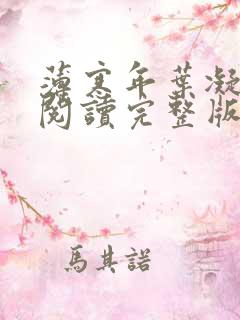 薄寒年葉凝
閱讀完整版
馬其諾